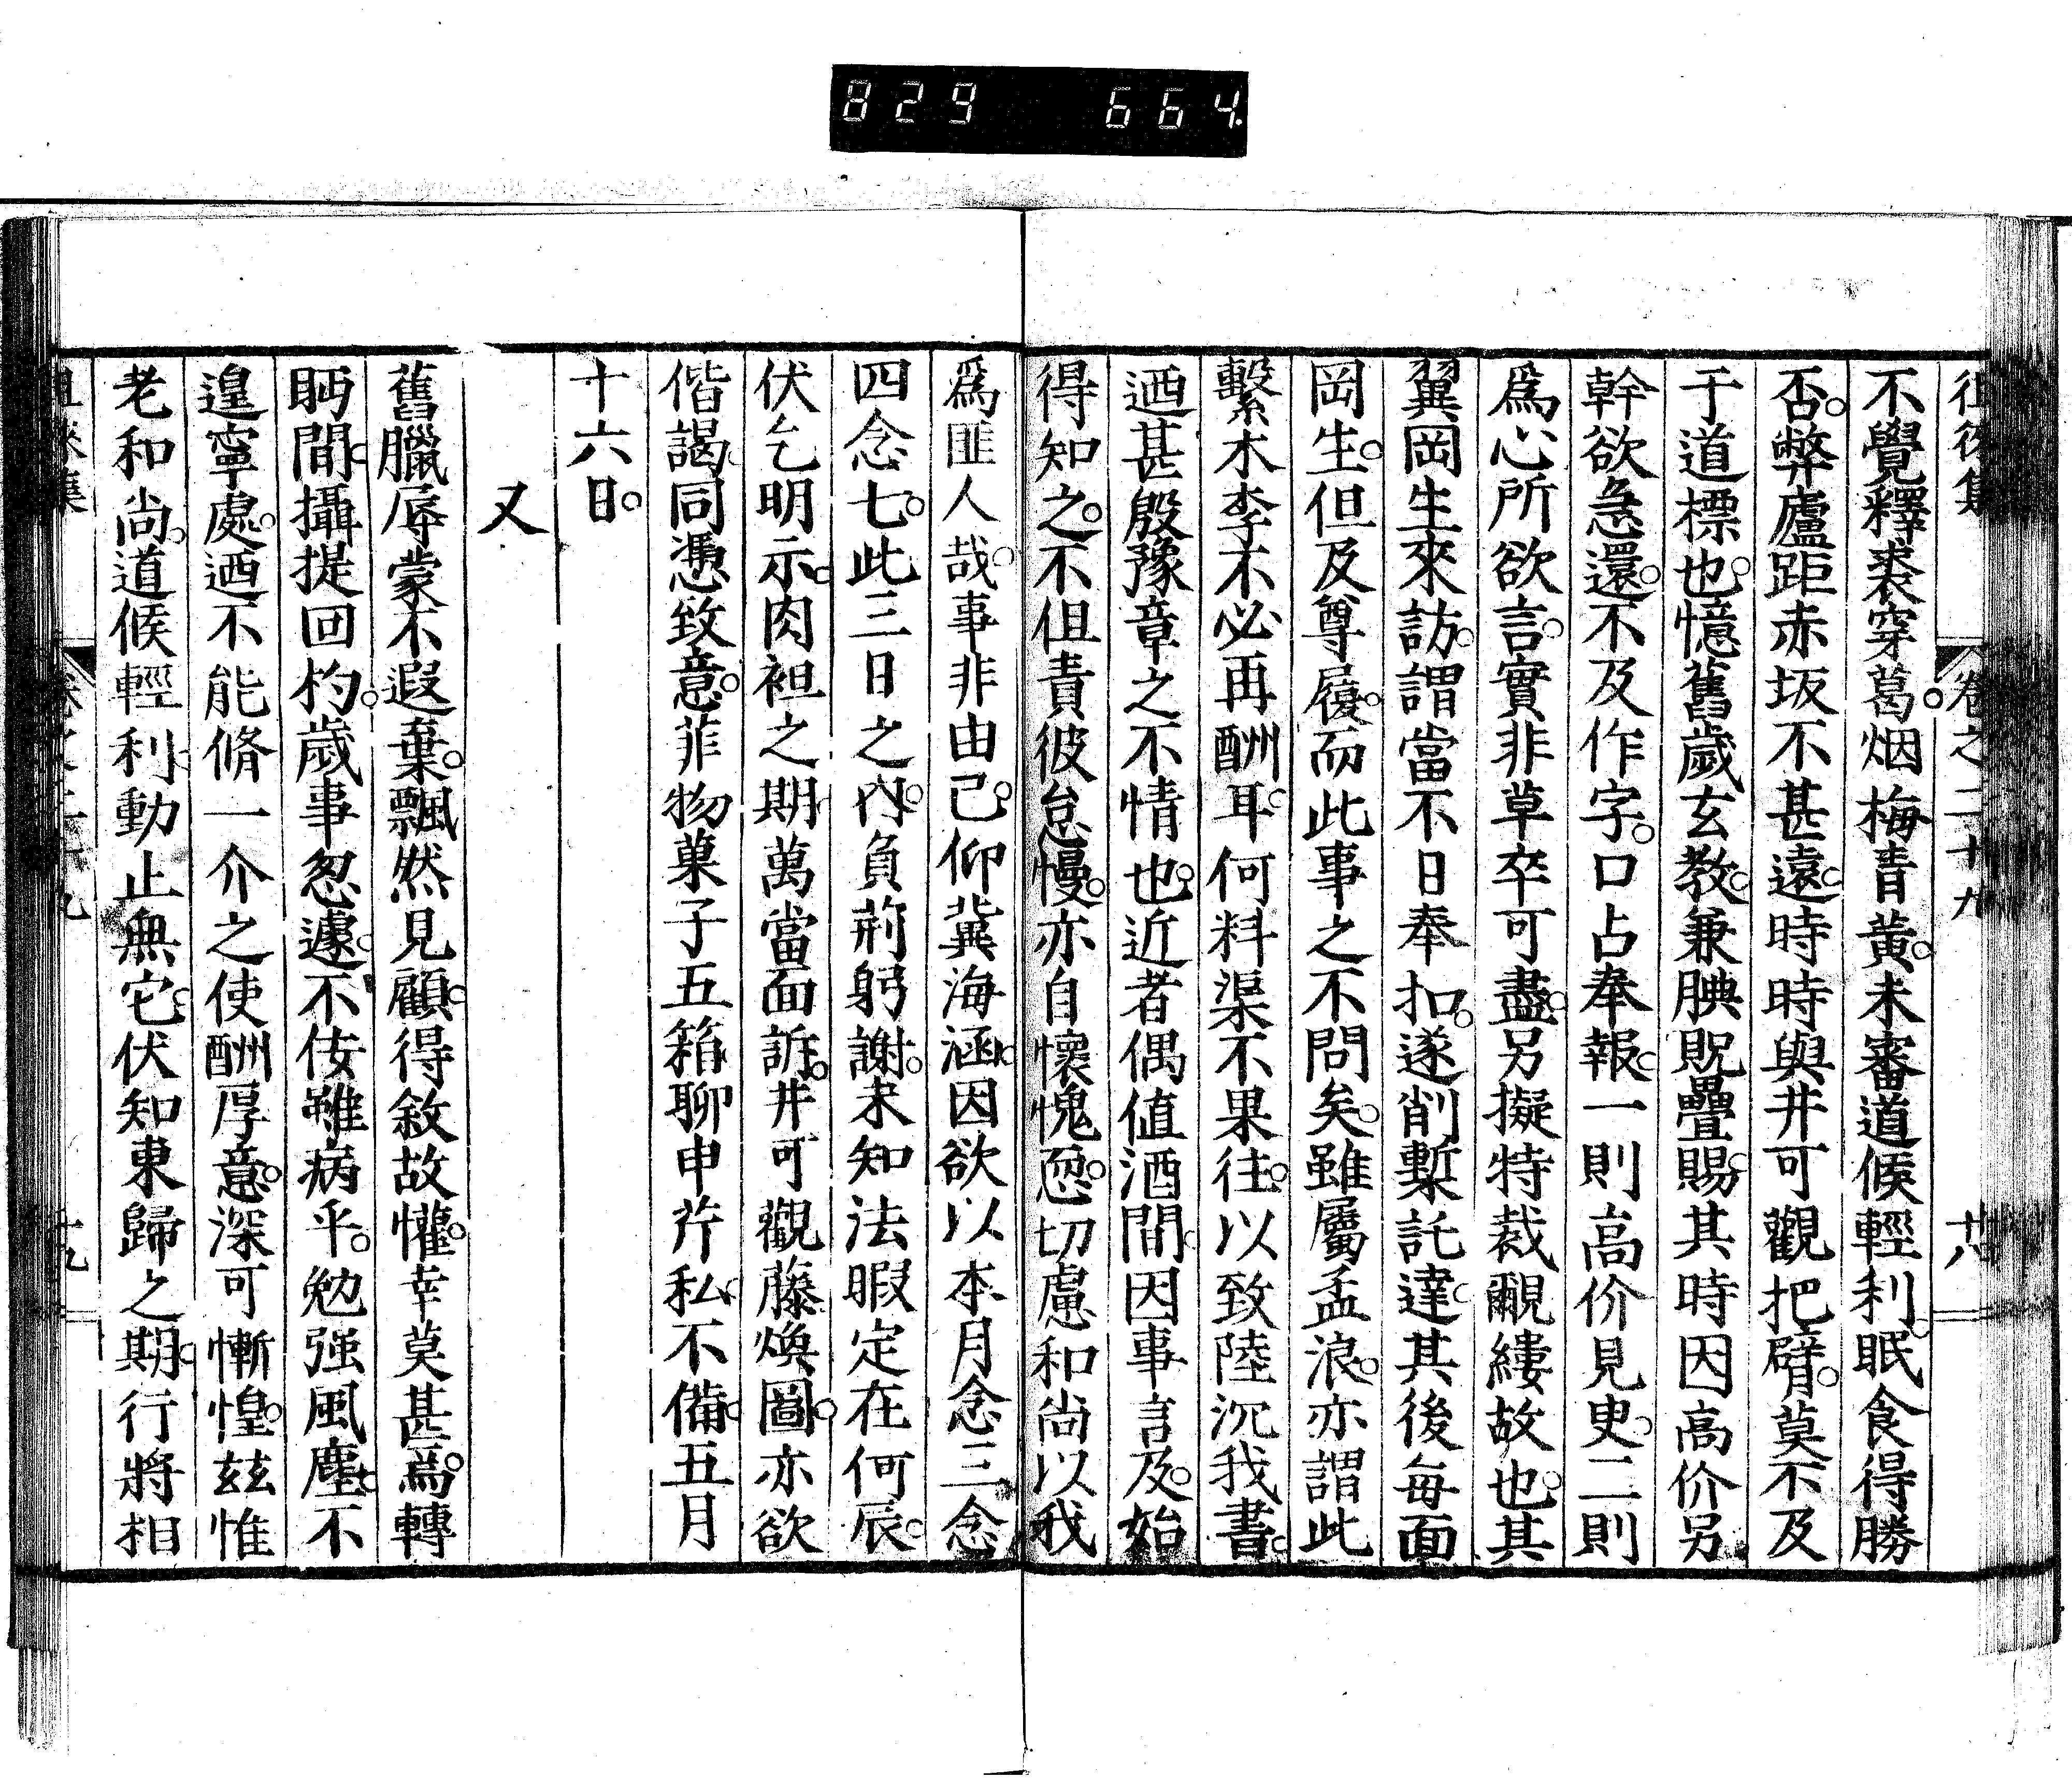 829 664
徂徠集 卷之二十九 十八
不覺釋裘穿葛。烟梅青黃。未審道候輕利。眠食得勝
否。弊廬距赤坂不甚遠。時時與井可觀把臂。莫不及
于道標也。憶舊歲玄教。兼腆貺疊賜。其時因高价另
幹欲急還。不及作字。口占奉報。一則高价見叓。二則
爲心所欲言。實非草卒可盡。另擬特裁覼縷故也。其
翼岡生來訪。謂當不日奉扣。遂削槧託達。其後每面
岡生。但及尊履。而此事之不問矣。雖屬孟浪。亦謂此
繫木李不必再酬耳。何料渠不果往。以致陸沉我書。
迺甚殷豫章之不情也。近者偶値酒間。因事言及。始
得知之。不但責彼怠慢。亦自懷愧恧。切慮和尚以我
爲匪人哉。事非由己。仰冀海涵。因欲以本月念三念
四念七。此三日之內。負荊躬謝。未知法暇定在何辰。
伏乞明示。肉袒之期。萬當面訴。井可觀藤煥圖。亦欲
偕謁。同憑致意。菲物菓子五箱。聊申芹私。不備。五月
十六日。
又
舊臘辱蒙不遐棄。飄然見顧。得敘故懽。幸莫甚焉。轉
眄間。攝提回杓。歲事怱遽。不佞雖病乎。勉强風塵。不
遑寧處。迺不能脩一介之使酬厚意。深可慚惶。玆惟
老和尚。道候輕利。動止無它。伏知東歸之期。行將相
徂徠集 卷之二十九 十九